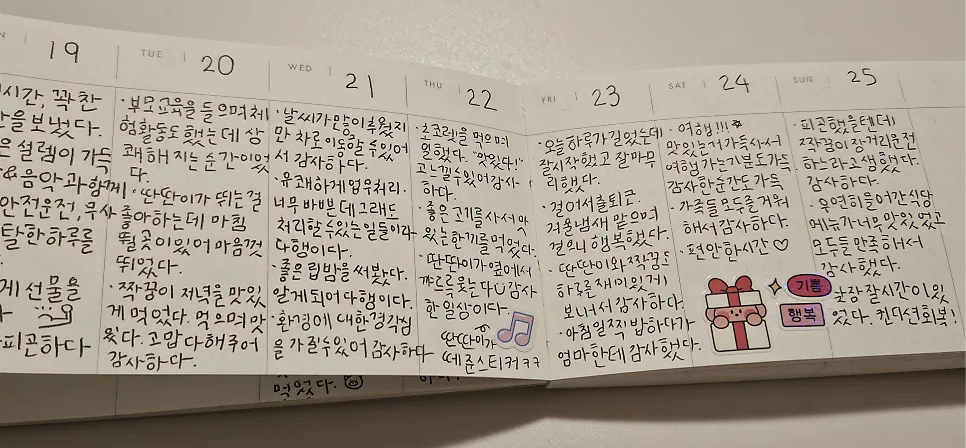 19
시간, 꽉 찬
을 보냈다.
은 설렘이 가득
&음악과 함께
안전운전, 무사
탈한 하루를
게 선물을
피곤하다
TUE
20
·부모교육을 들으며 체
험활동도 했는데 상
쾌해지는 순간이었
다.
·딴딴이가 뛰는 걸
좋아하는데 마침
뛸 곳이 있어 마음껏
뛰었다.
·짝꿍이 저녁을 맛있
게 먹었다. 먹으며 맛
있다. 고맙다 해주어
감사하다.
WED
21
·날씨가 많이 추웠지
만 차로 이동할 수 있어
서 감사하다.
·유쾌하게 업무처리.
너무 바쁜데 그래도
처리할 수 있는 일들이라
다행이다.
·좋은 립밤을 써봤다.
알게 되어 다행이다.
·환경에 대한 경각심
을 가질 수 있어 감사하다
먹었다.
THU
22
·초코렛을 먹으며
일했다. "맛있다!"
고 느낄 수 있어 감사
하다.
·좋은 고기를 사서 맛
있는 한끼를 먹었다.
·딴딴이가 옆에서
까르륵 웃는다 감사
한 일상이다.
딴딴이가
떼준스티커ㅋㅋ
FRI
23
·오늘 하루가 길었는데
잘 시작했고 잘 마무
리했다.
·걸어서 출퇴근.
겨울냄새 맡으며
걸으니 행복했다.
·딴딴이와 짝꿍도
하루를 재미있게
보내서 감사하다.
·아침일찍 밥하다가
엄마한테 감사했다.
SAT
24
·여행!!!
맛있는거 가득 사서
여행가는 기분도 가득
감사한 순간도 가득
·가족들 모두 즐거워
해서 감사하다.
·편안한 시간♡
SUN
25
·피곤했을텐데
짝꿍이 장거리운전
하느라 고생했다.
감사하다.
·우연히 들어간 식당
메뉴가 너무 맛있었고
모두들 만족해서
감사했다.
기쁨
행복
낮잠 잘 시간이 있
었다. 컨디션회복!